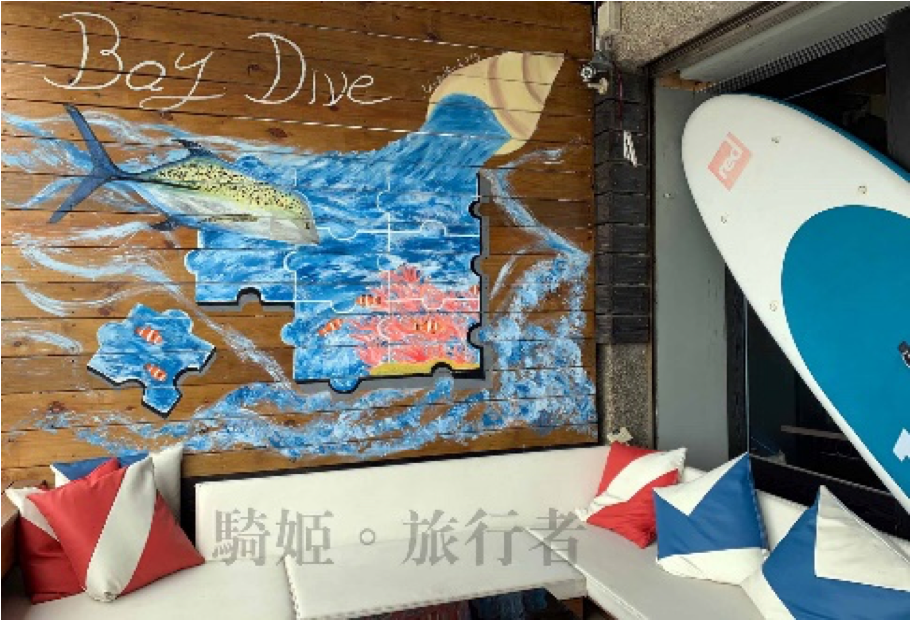 Bay Dive
red
騎姬。旅行者